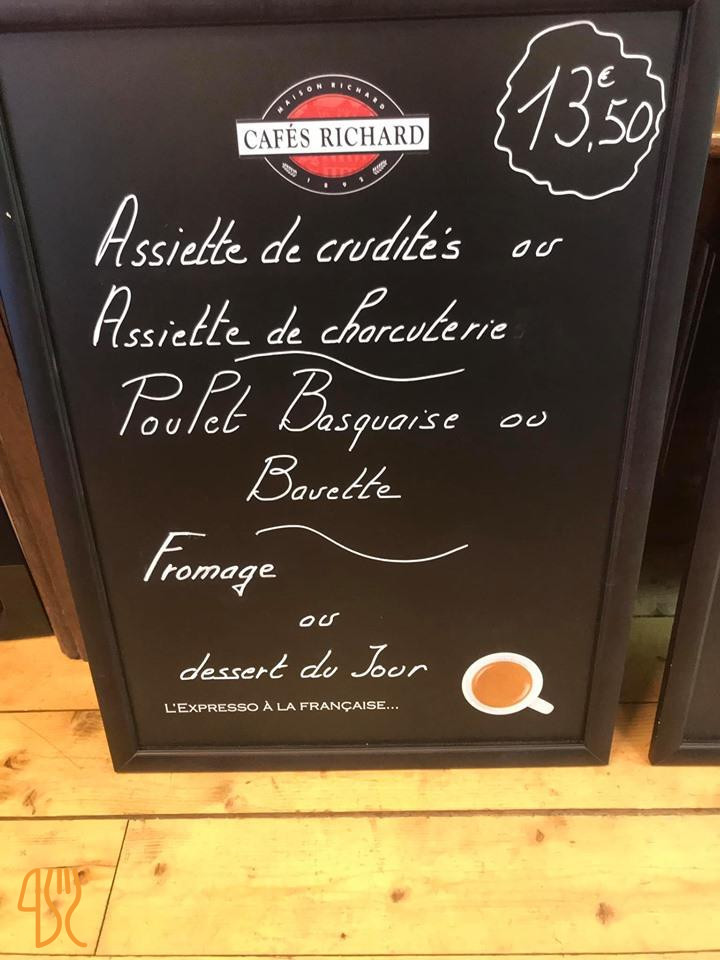 MAISON RICHARD
CAFÉS RICHARD
1892
13€,50
Assiette de crudités ou
Assiette de charcuterie
Poulet Basquaise ou
Bavette
Fromage
ou
dessert du Jour
L'EXPRESSO À LA FRANÇAISE...